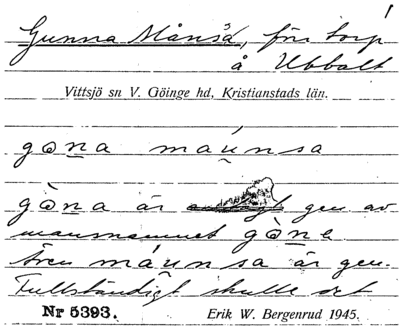 1
Gunna Månsa, förr torp
å Ubbalt
Vittsjö sn V. Göinge hd, Kristianstads län.
gɷna máunsa
gɷ̀na är gen av
mansnamnet gɷ̀ne
även máunsa är gen.
Fullständigt skulle det
Nr 5393.
Erik W. Bergenrud 1945.